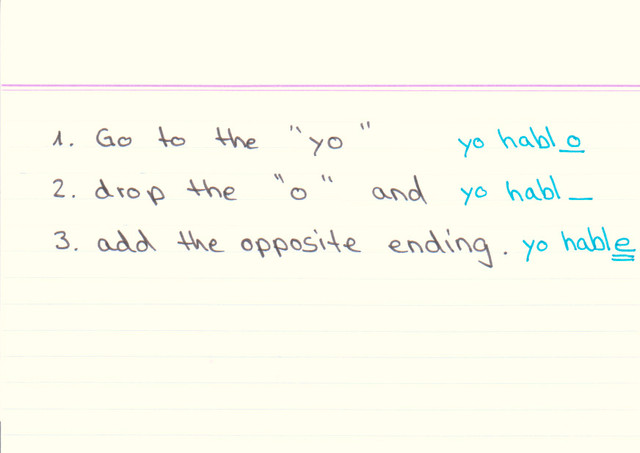 1. Go to the "yo" yo hablo
2. drop the "o" and yo habl_
3. add the opposite ending. yo hable